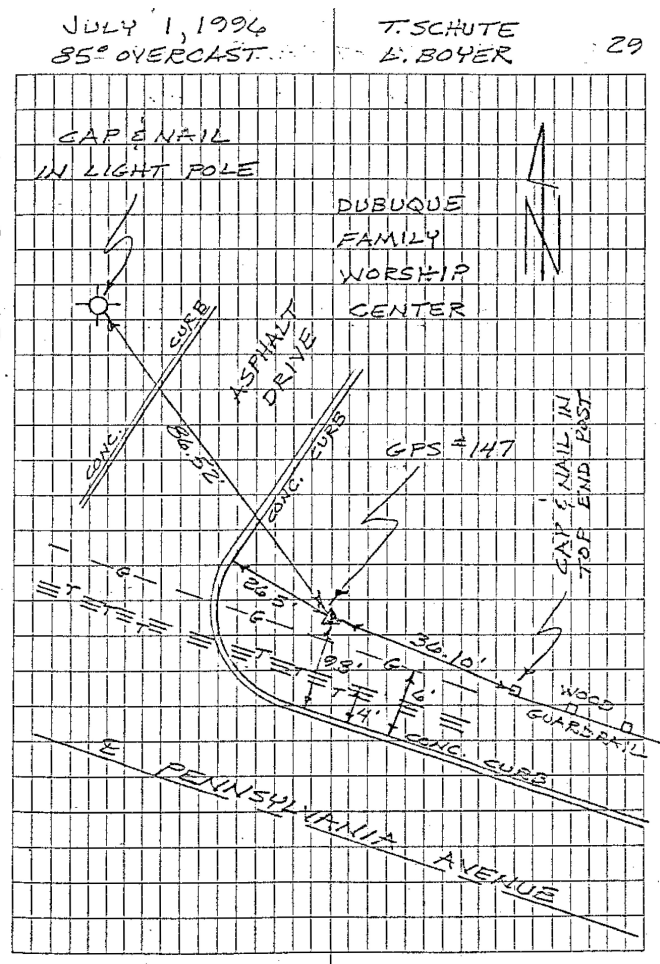 JULY 1, 1996
85° OVERCAST
T. SCHUTE
L. BOYER
29
CAP & NAIL
IN LIGHT POLE
DUBUQUE
FAMILY
WORSHIP
CENTER
CURB
CONC.
ASPHALT
DRIVE
CONC. CURB
86.52'
GPS #147
CAP & NAIL IN
TOP END POST
26.5'
36.10'
G
G
G
T
T
T
T
T
T
9.8'
6'
4'
WOOD
GUARDRAIL
CONC. CURB
℄ PENNSYLVANIA AVENUE